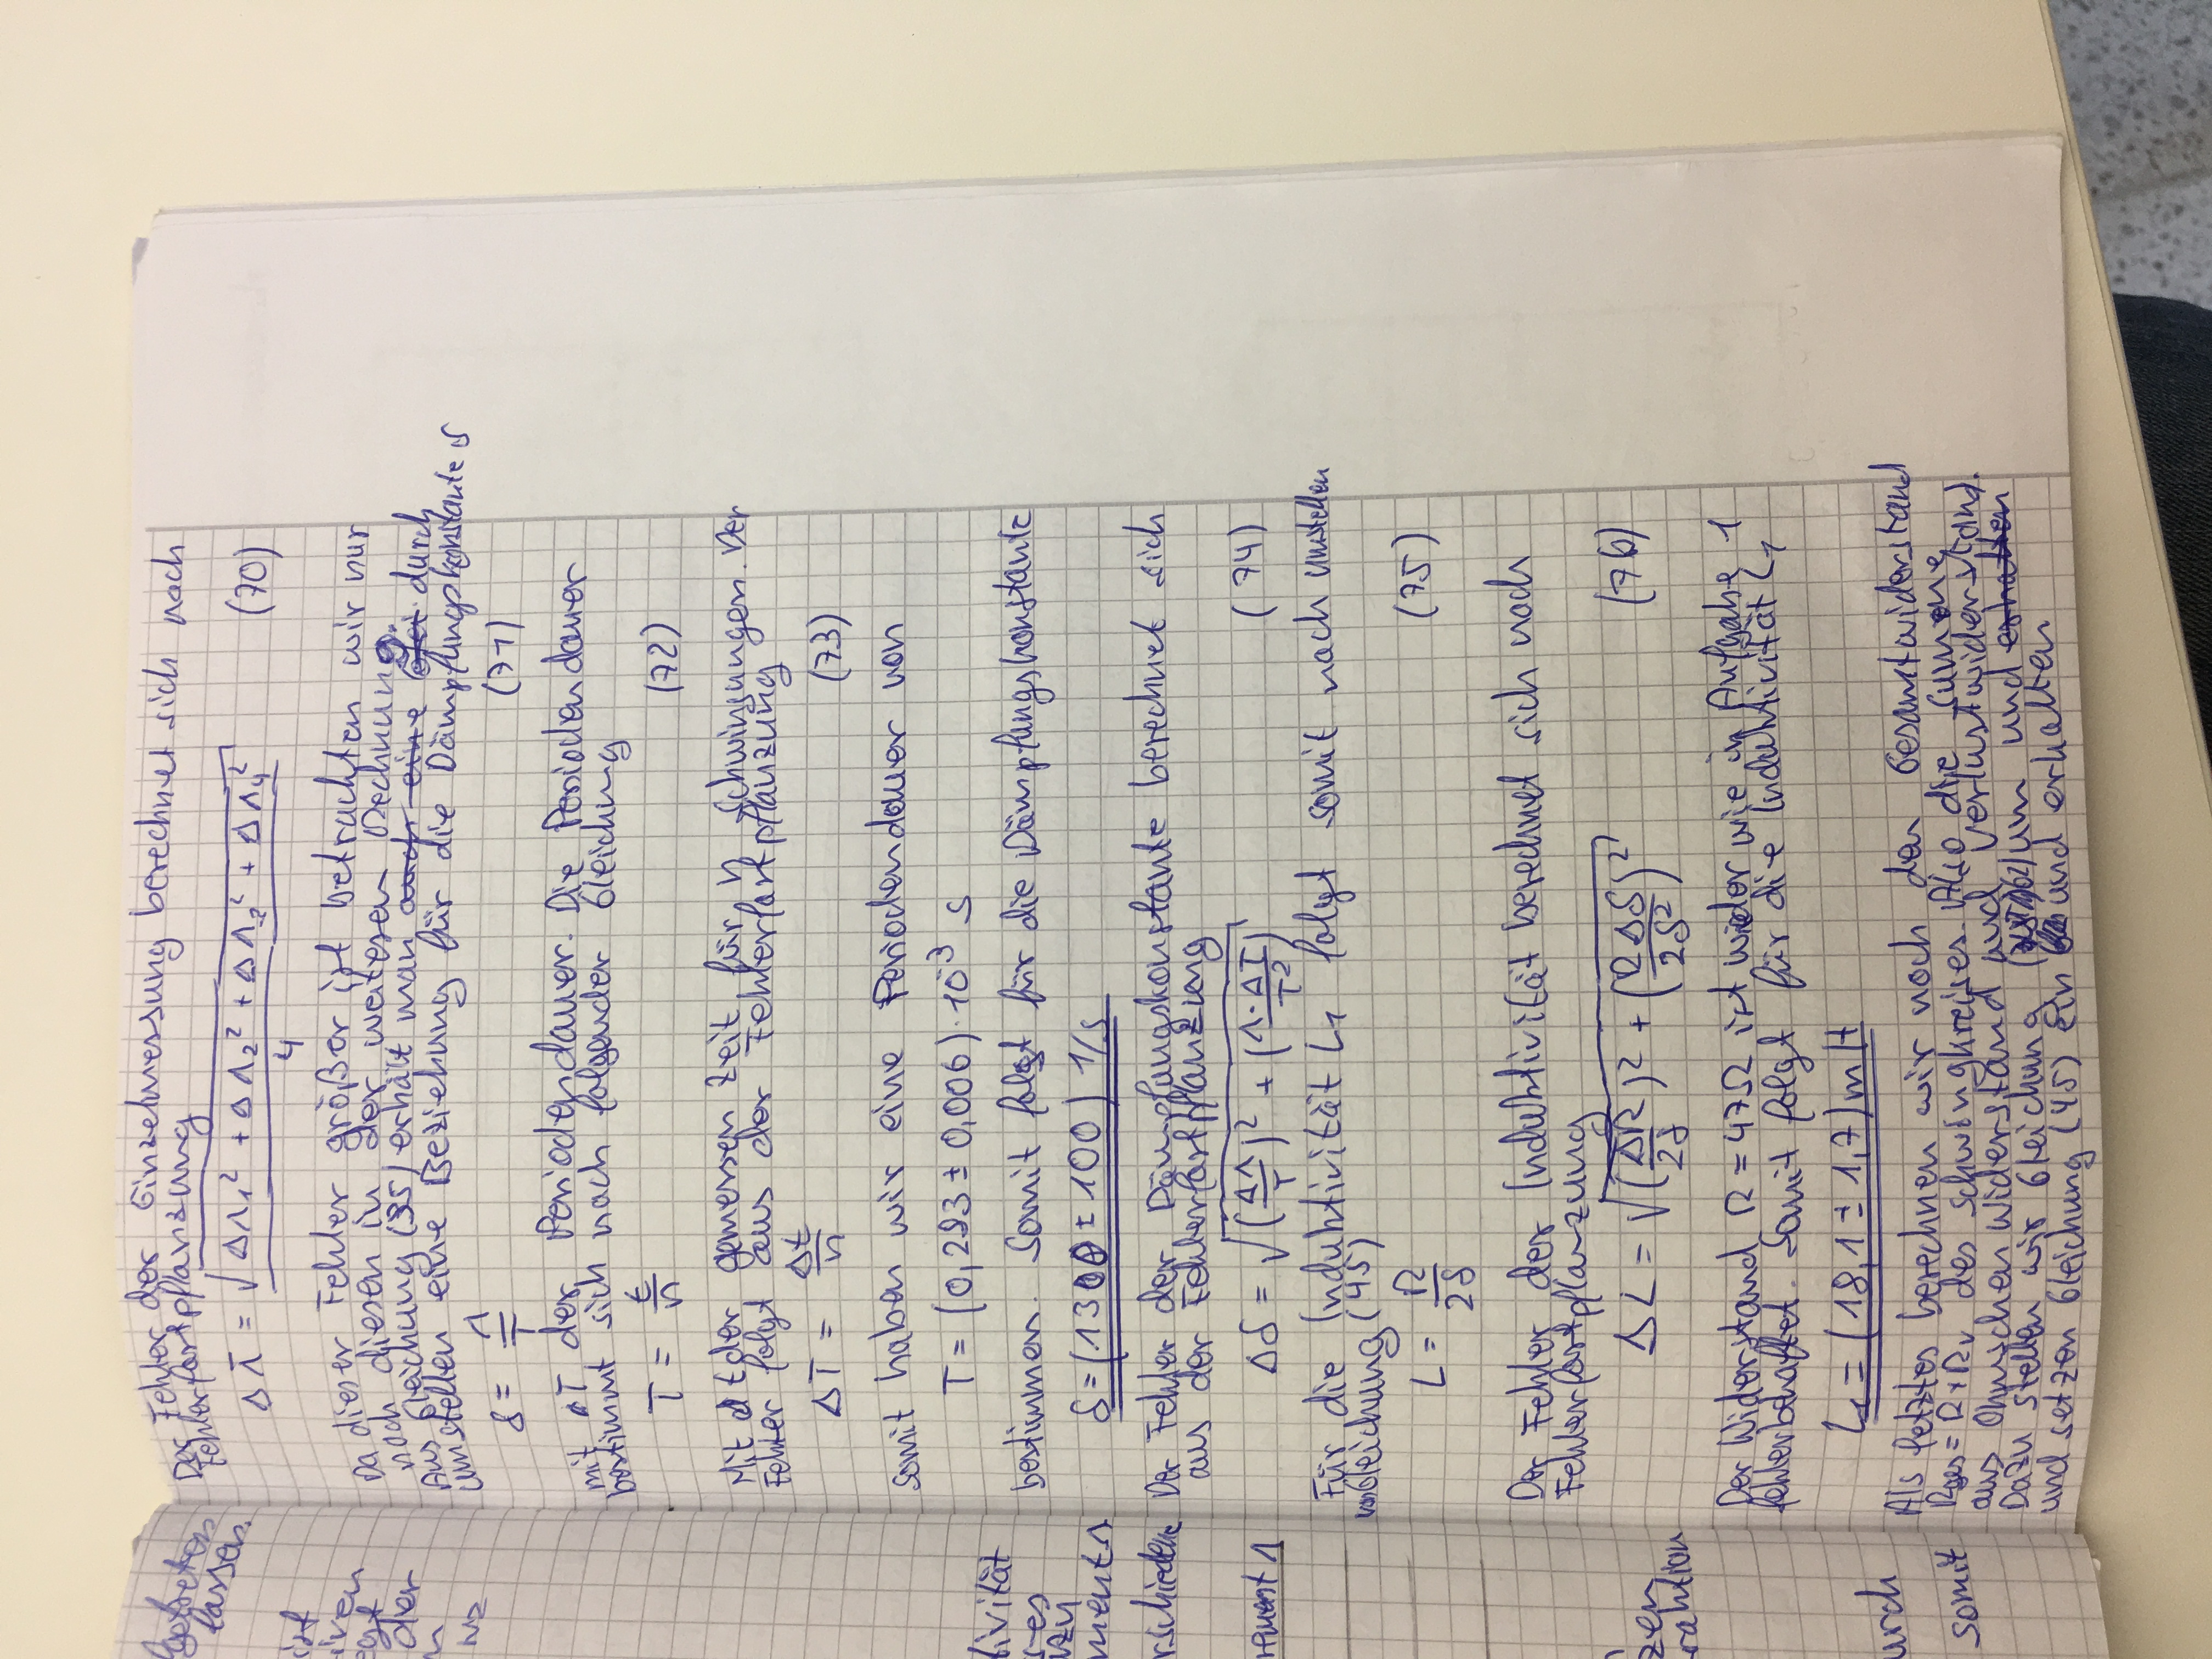 Der Fehler der Einzelmessung berechnet sich nach
Fehlerfortpflanzung
ΔΛ̄ = √(ΔΛ₁² + ΔΛ₂² + ΔΛ₃² + ΔΛ₄²) / 4 (70)
Da dieser Fehler größer ist betrachten wir nur
noch diesen in der weiteren Rechnung.
Aus Gleichung (35) erhält man auch eine durch
umstellen eine Beziehung für die Dämpfungskonstante δ
δ = Λ/T (71)
mit T der Periodendauer. Die Periodendauer
bestimmt sich nach folgender Gleichung
T = t/n (72)
Mit t der gemessen Zeit für n Schwingungen. Der
Fehler folgt aus der Fehlerfortpflanzung
ΔT = Δt/n (73)
Somit haben wir eine Periodendauer von
T = (0,293 ± 0,006)·10⁻³ s
bestimmen. Somit folgt für die Dämpfungskonstante
δ = (1300 ± 100) 1/s
Der Fehler der Dämpfungskonstante berechnet sich
aus der Fehlerfortpflanzung
Δδ = √((ΔΛ/T)² + (Λ·ΔT/T²)) (74)
Für die Induktivität L₁ folgt somit nach umstellen
von Gleichung (45)
L = R/2δ (75)
Der Fehler der Induktivität berechnet sich nach
Fehlerfortpflanzung
ΔL = √((ΔR/2δ)² + (RΔδ/2δ²)²) (76)
Der Widerstand R = 47Ω ist wieder wie in Aufgabe 1
fehlerbehaftet. Somit folgt für die Induktivität L₁
L₁ = (18,1 ± 1,7) mH
Als letztes berechnen wir noch den Gesamtwiderstand
Rges = R+Rv des Schwingkreises. Also die Summe
aus Ohmschen Widerstand und Verlustwiderstand.
Dazu stellen wir Gleichung um und erhalten
und setzen Gleichung (45) ein und erhalten
getreten
lassen.
ist
der
N2
tivität
ments
rschiedene
ement 1
zen
urch
somit